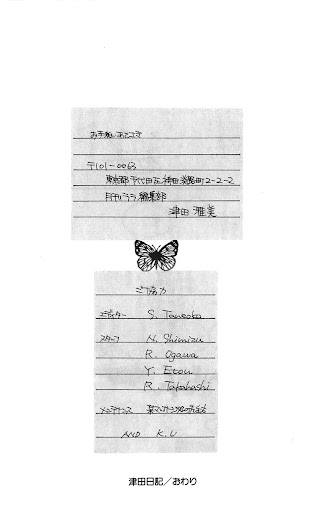 お手紙のあてさき
〒101-0063
東京都千代田区神田淡路町2-2-2
月刊ララ編集部
津田雅美
ご協力
エディター S. Taneoka
スタッフ N. Shimizu
R. Ogawa
Y. Etou
R. Takahashi
メンテナンス
AND K.U
津田日記／おわり